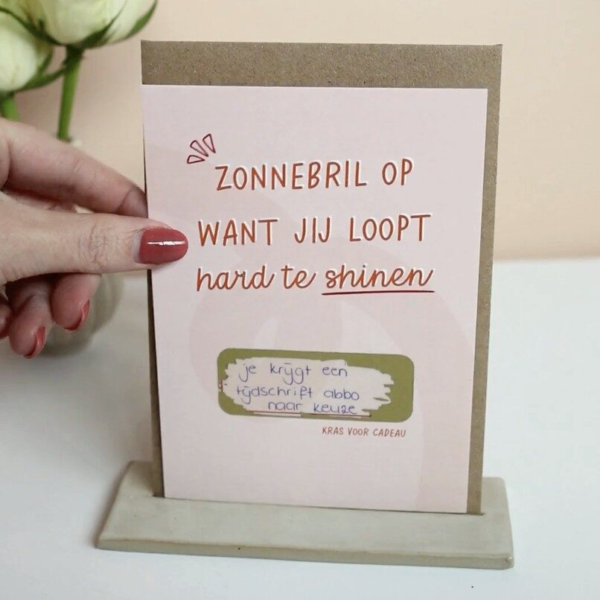 ZONNEBRIL OP
WANT JIJ LOOPT
hard te shinen
je krijgt een
tijdschrift abbo
naar keuze
KRAS VOOR CADEAU